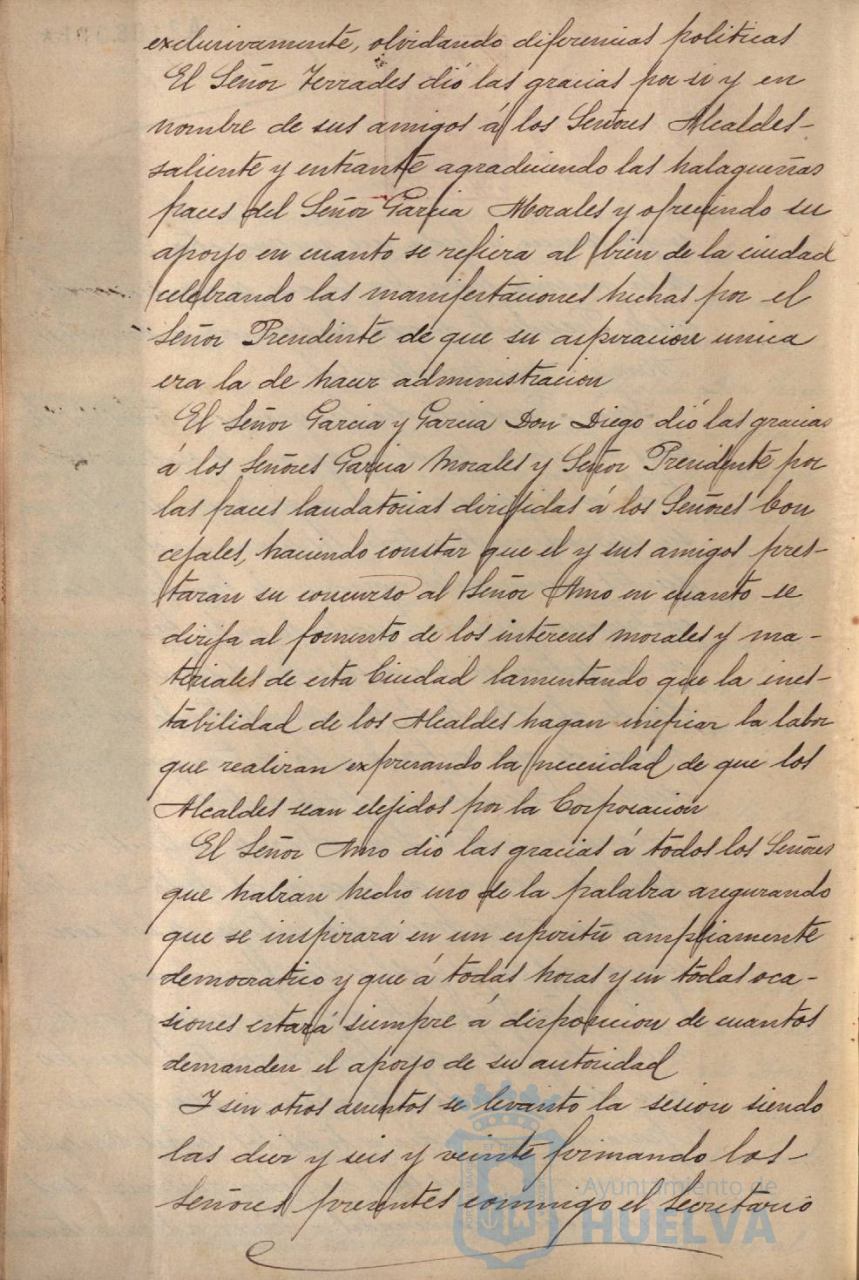 exclusivamente, olvidando diferencias politicas
El Señor Terrades dió las gracias por si y en
nombre de sus amigos á los Señores Alcaldes-
saliente y entrante agradeciendo las halagueñas
fraces del Señor Garcia Morales y ofreciendo su
apoyo en cuanto se refiera al bien de la ciudad
celebrando las manifestaciones hechas por el
Señor Presidente de que su aspiracion unica
era la de hacer administracion
El Señor Garcia y Garcia Don Diego dió las gracias
á los Señores Garcia Morales y Señor Presidente por
las fraces laudatorias dirijidas á los Señores Con
cejales, haciendo constar que el y sus amigos pres-
taran su concurso al Señor Amo en cuanto se
dirija al fomento de los intereses morales y ma-
teriales de esta Ciudad lamentando que la ines-
tabilidad de los Alcaldes hagan ineficar la labor
que realizan expresando la necesidad de que los
Alcaldes sean elejidos por la Corporacion
El Señor Amo dió las gracias á todos los Señores
que habian hecho uso de la palabra asegurando
que se inspirará en un espiritu ampliamente
democratico y que á todas horas y en todas oca-
siones estará siempre á disposicion de cuantos
demanden el apoyo de su autoridad
I sin otros asuntos se levanto la sesion siendo
las diez y seis y veinte firmando los-
señores presentes conmigo el Secretario
Ayuntamiento de
HUELVA